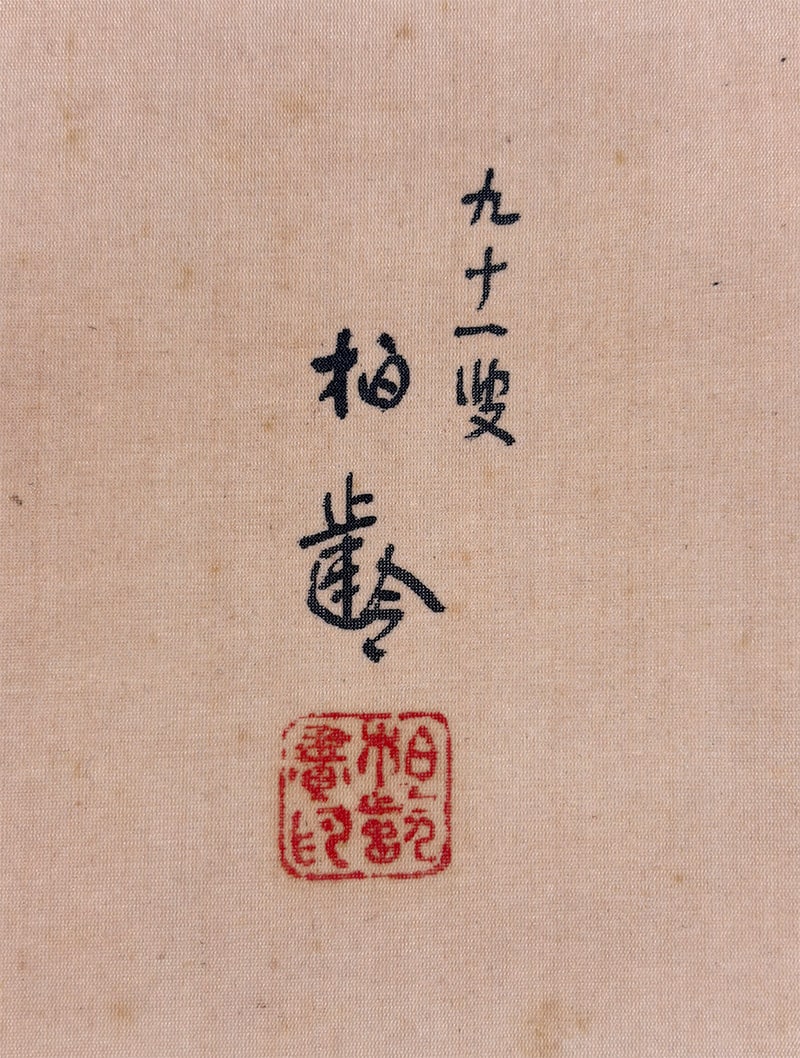 九十一叟
柏齡
柏齡
書印